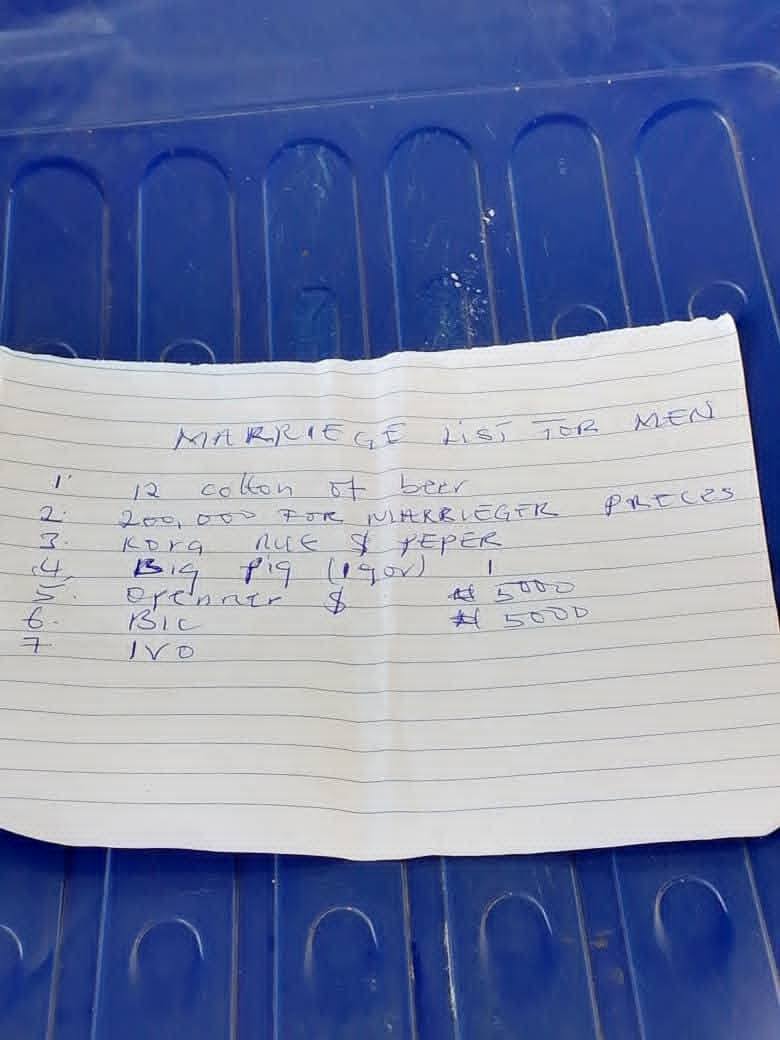 MARRIEGE LIST FOR MEN
1. 12 cotton of beer
2. 200,000 FOR MARRIEGER PRICES
3. KORA RICE $ PEPER
4. Big pig (igor) 1
5. Openner $ ₦ 5000
6. BIC ₦ 5000
7 IVO